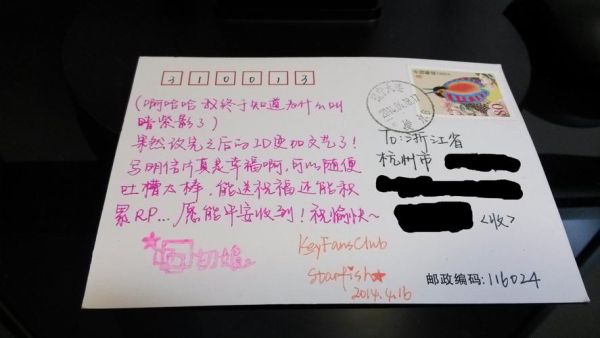 310013
(啊哈哈 我终于知道为什么叫
暗紫影了)
果然改完之后的ID更加文艺了!
写明信片真是幸福啊,可以随便
吐槽太棒,能送祝福还能积
累RP...愿能早接收到!祝愉快~
切娘
KeyFansClub
Starfish★
2014.4.16
中国邮政 CHINA
80
2014.04.16.17
To:浙江省
杭州市
<收>
邮政编码:116024